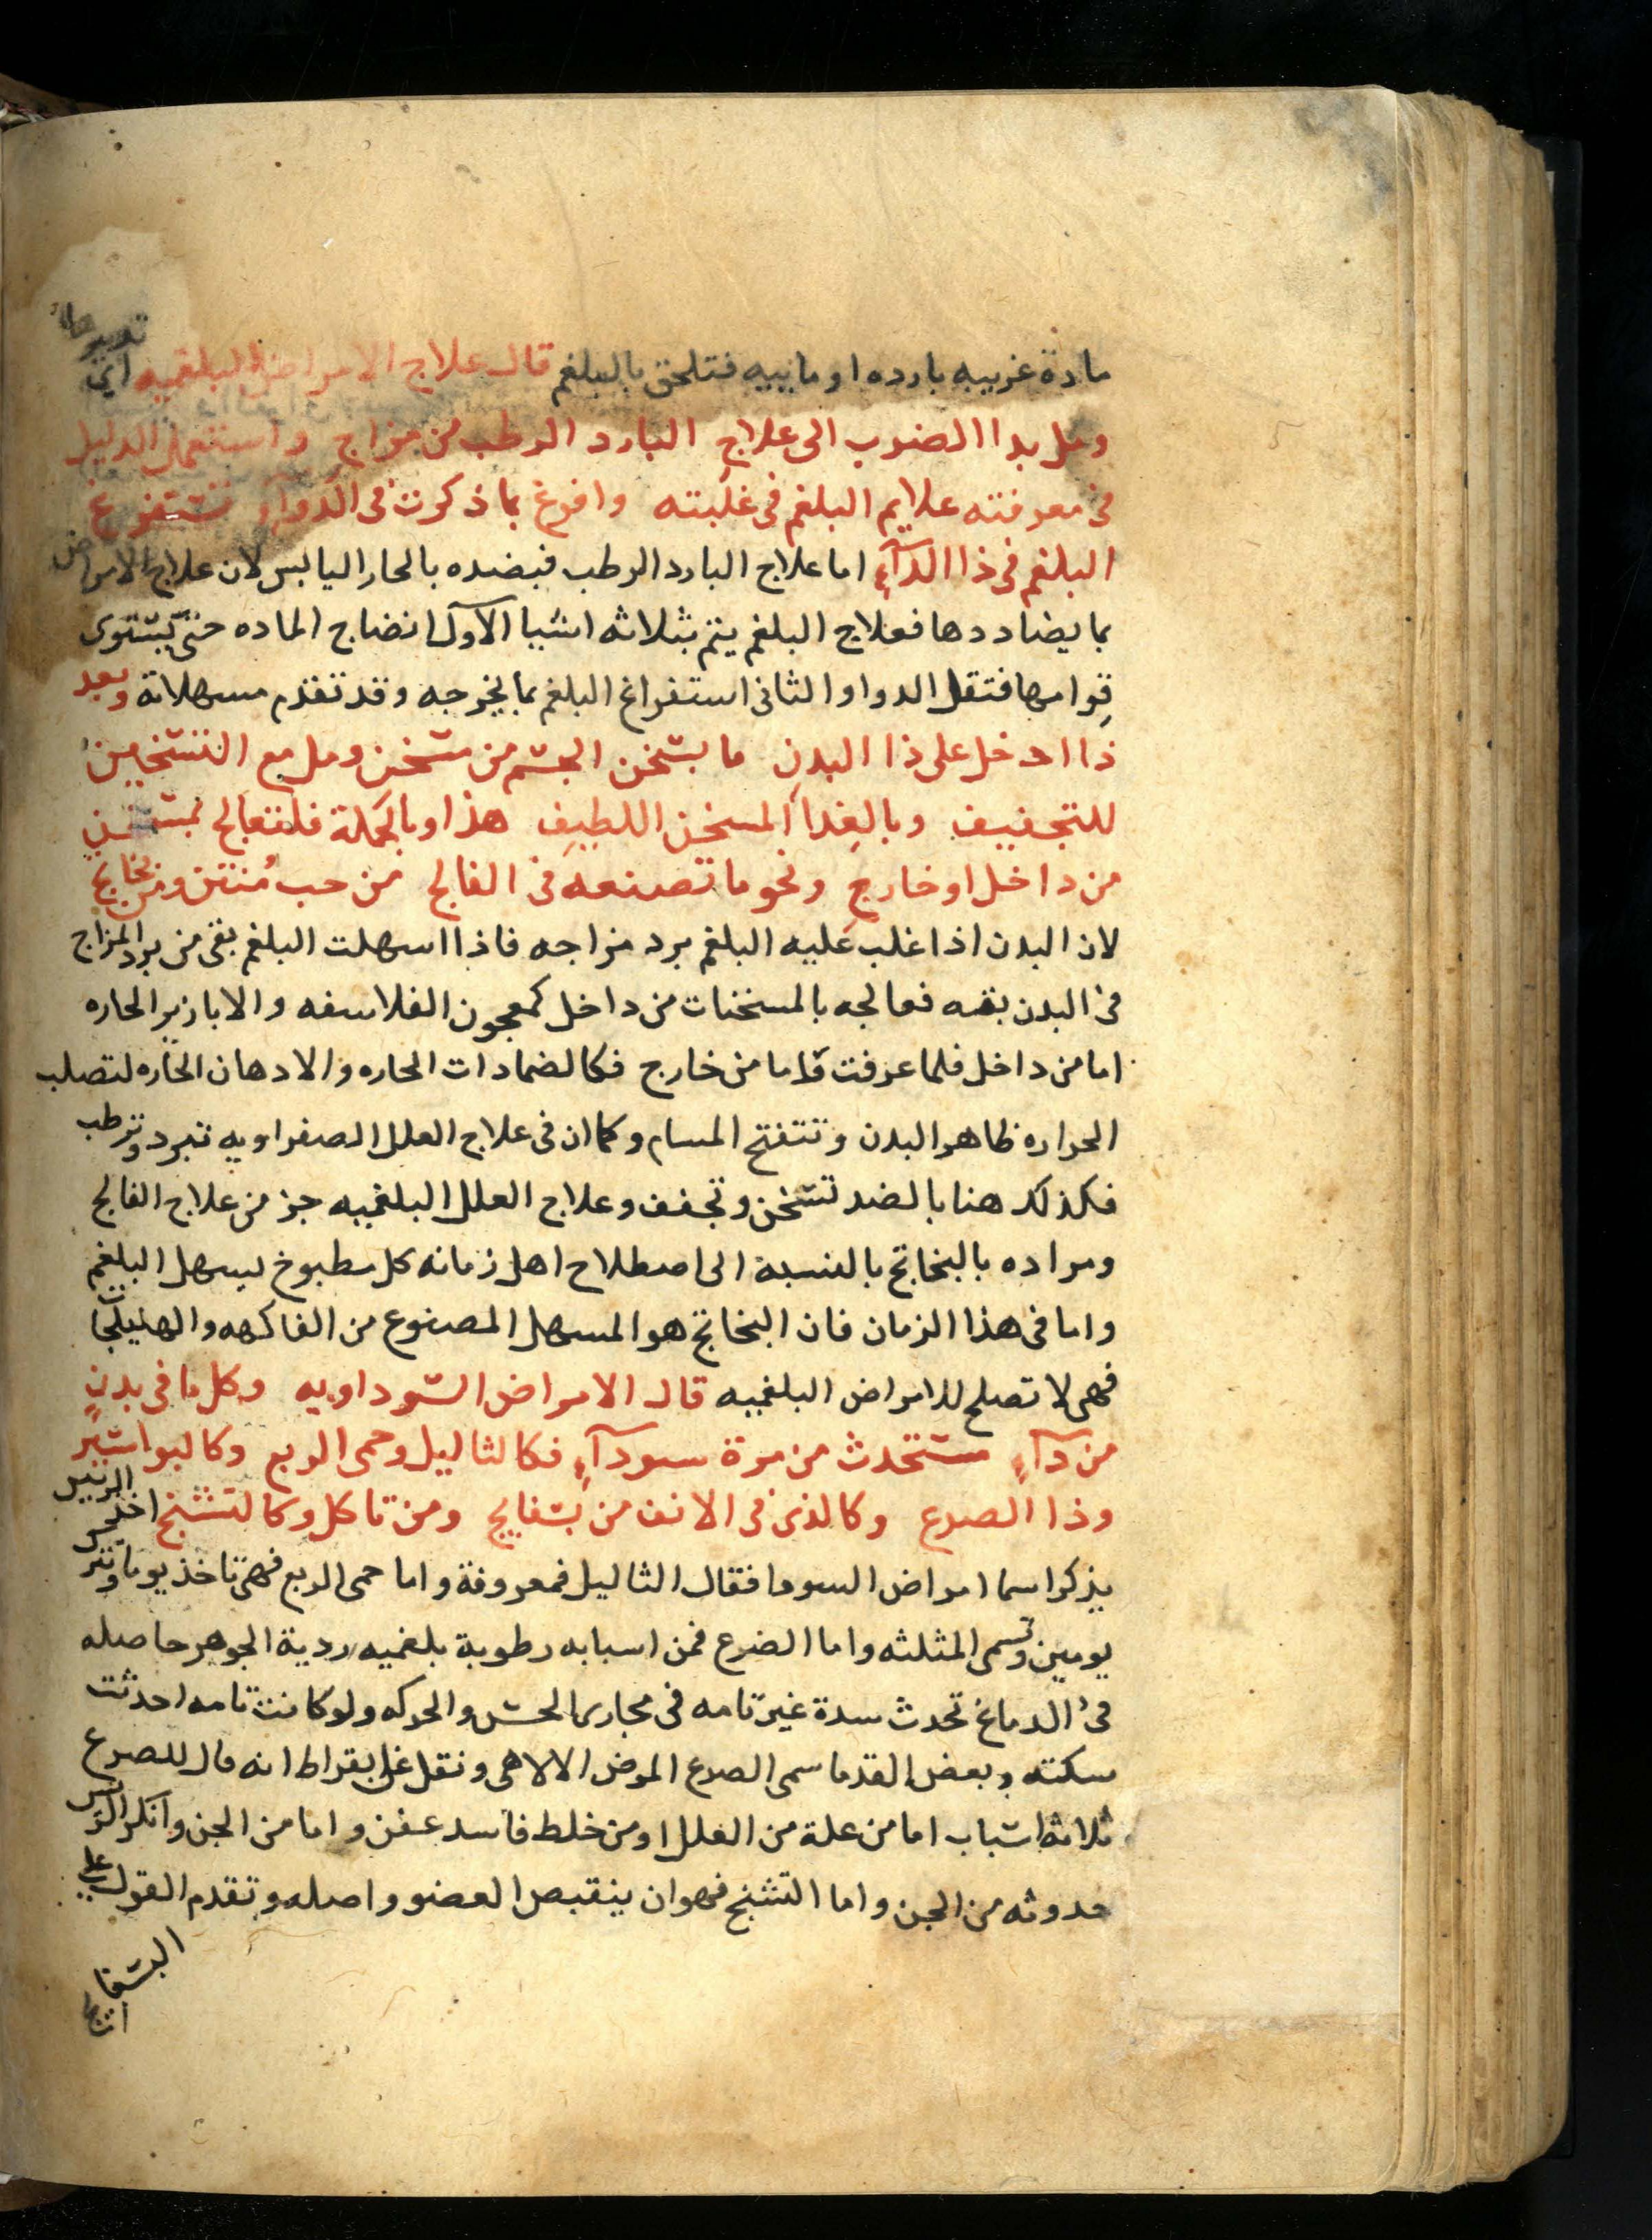 مادة غريبه بارده او ماييه فتلحق بالبلغم قال علاج الامراض البلغميه اي
ومل بدا الضرب الى علاج البارد الرطب من مزاج واستعمل الدليل
في معرفته علايم البلغم في غلبته وافرغ بما ذكرت في الدواء تستفرغ
البلغم في ذا الدآءِ اما علاج البارد الرطب فبضده بالحار اليابس لان علاج الامراض
بما يضاددها فعلاج البلغم يتم بثلاثه اشيا الاول انضاج الماده حتى يستوى
قوامها فتقل الدوا والثانى استفراغ البلغم بما يخرجه وقد تقدم مسهلاته وبعد
ذا ادخل على ذا البدن ما يسخن الجسم من مسخن ومل مع التسخين
للتجفيف وبالغدا المسخن اللطيف هذا وبالجملة فلتعالج بمسخن
من داخل او خارج ونحو ما تصنعه في الفالج من حب مُنتن ومن بخاتج
لان البدن اذا غلب عليه البلغم برد مزاجه فاذا اسهلت البلغم بقى من برد المزاج
في البدن بقيه فعالجه بالمسخنات من داخل كمعجون الفلاسفه والابازير الحاره
اما من داخل فلما عرفت واما من خارج فكالضمادات الحاره والادهان الحاره لتصلب
الحراره ظاهر البدن وتتفتح المسام وكما ان في علاج العلل الصفراويه تبرد وترطب
فكذلك هنا بالضد تسخن وتجفف وعلاج العلل البلغميه جز من علاج الفالج
ومراده بالبخاتج بالنسبة الى اصطلاح اهل زمانه كل مطبوخ يسهل البلغم
واما في هذا الزمان فان البخاتج هو المسهل المصنوع من الفاكهه والهليلجات
فهى لا تصلح للامراض البلغميه قال الامراض السوداويه وكل ما في بدنٍ
من دآءٍ مستحدث من مرة سودآءِ فكالثاليل وحمى الربع وكالبواسير
وذا الصرع وكالذى في الانف من بسفايج ومن تاكل وكالتشنج اخذ الرييس
يذكر اسما امراض السودا فقال الثاليل فمعروفة واما حمى الربع فهى تاخذ يوما وتترك
يومين وتسمى المثلثه واما الصرع فمن اسبابه رطوبة بلغميه ردية الجوهر حاصله
في الدماغ تحدث سدة غير تامه في مجارى الحس والحركه ولو كانت تامه احدثت
سكته وبعض القدما سمى الصرع المرض الالاهى ونقل عن ابقراط انه قال للصرع
ثلاثة اسباب اما من علة من العلل او من خلط فاسد عفن واما من الجن وانكر الرييس
حدوثه من الجن واما التشنج فهو ان ينقبض العضو واصله وتقدم القول عليه
البسفا